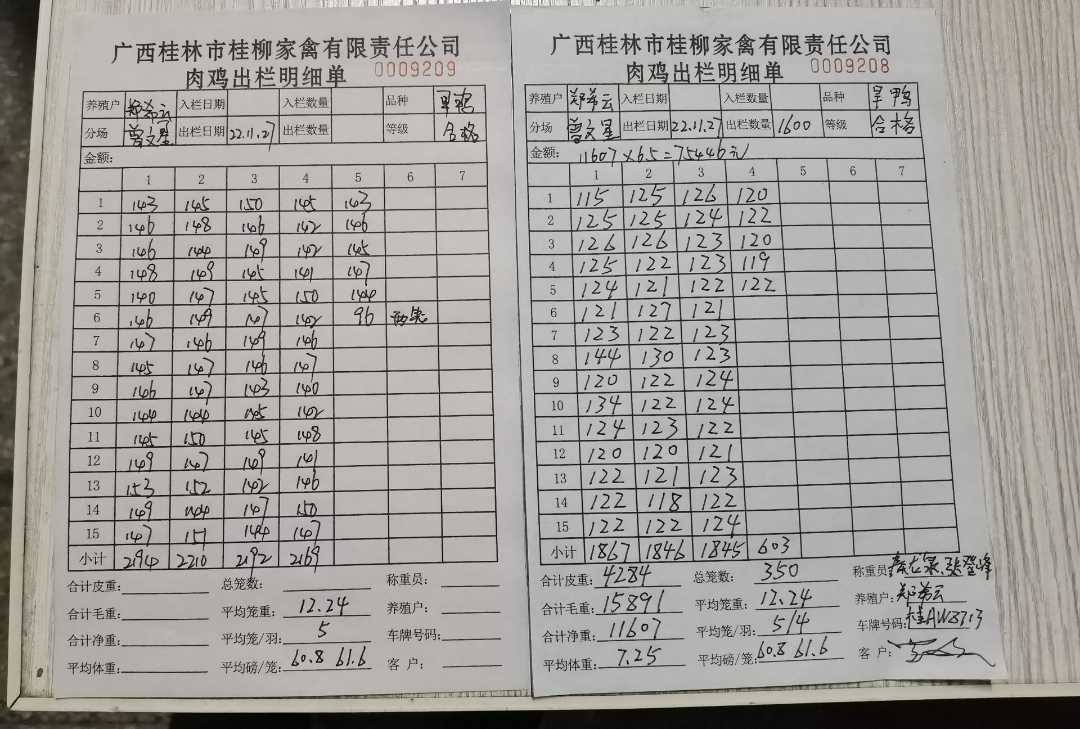 广西桂林市桂柳家禽有限责任公司
肉鸡出栏明细单 0009209
养殖户 郑希云 入栏日期 入栏数量 品种
分场 曾文星 出栏日期 22.11.27 出栏数量 等级 合格
金额:
1 2 3 4 5 6 7
1 143 145 150 145 143
2 146 148 146 142 146
3 146 144 149 142 145
4 148 149 145 141 147
5 140 147 145 150 144
6 146 149 147 142 96
7 147 146 149 146
8 145 147 146 147
9 146 147 143 140
10 144 144 145 142
11 145 150 145 148
12 149 147 149 141
13 153 152 142 146
14 149 144 147 150
15 147 151 144 147
小计 2194 2210 2192 2169
合计皮重: 总笼数: 称重员:
合计毛重: 平均笼重: 12.24 养殖户:
合计净重: 平均笼/羽: 5 车牌号码:
平均体重: 平均磅/笼: 60.8 61.6 客 户:
广西桂林市桂柳家禽有限责任公司
肉鸡出栏明细单 0009208
养殖户 郑希云 入栏日期 入栏数量 品种 旱鸭
分场 曾文星 出栏日期 22.11.27 出栏数量 1600 等级 合格
金额: 11607×6.5=75446元
1 2 3 4 5 6 7
1 115 125 126 120
2 125 125 124 122
3 126 126 123 120
4 125 122 123 119
5 124 121 122 122
6 121 127 121
7 123 122 123
8 144 130 123
9 120 122 124
10 134 122 124
11 124 123 122
12 120 120 121
13 122 121 123
14 122 118 122
15 122 122 124
小计 1867 1846 1845 603
合计皮重: 4284 总笼数: 350 称重员:
合计毛重: 15891 平均笼重: 12.24 养殖户: 郑希云
合计净重: 11607 平均笼/羽: 5/4 车牌号码:
平均体重: 7.25 平均磅/笼: 60.8 61.6 客 户: